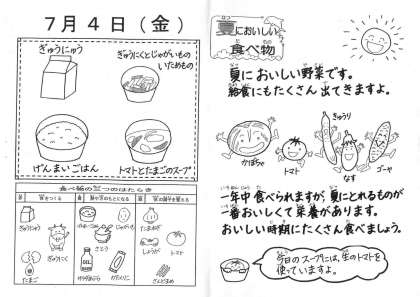 7月4日（金）
ぎゅうにゅう
ぎゅうにくとじゃがいもの
いためもの
げんまいごはん
トマトとたまごのスープ
食べ物の三つのはたらき
ぎゅうにゅう
たまご
さとう
たまねぎ
しょうが
トマト
夏においしい
食べ物
夏においしい野菜です。
給食にもたくさん出てきますよ。
かぼちゃ
トマト
きゅうり
なす
ゴーヤ
一年中食べられますが、夏にとれるものが
一番おいしくて栄養があります。
おいしい時期にたくさん食べましょう。
今日のスープには、生のトマトを
使っていますよ。